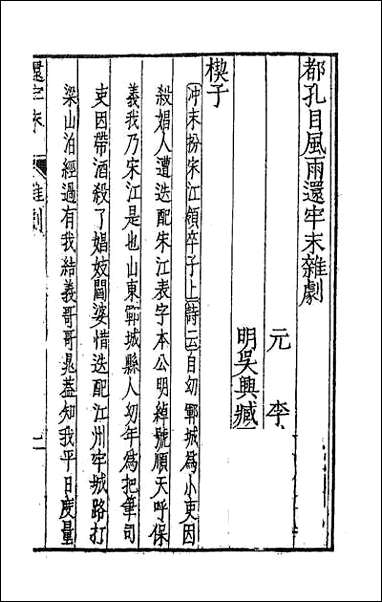 都孔目風雨還牢末雜劇
元 李
明吳興臧
楔子
冲末扮宋江領卒子上詩云自幼鄆城為小吏因
殺娼人遭迭配宋江表字本公明綽號順天呼保
義我乃宋江是也山東鄆城縣人幼年為把筆司
吏因帶酒殺了娼妓閻婆惜迭配江州牢城路打
梁山泊經過有我結義哥哥晁蓋知我平日度量
還牢末 雜劇 一